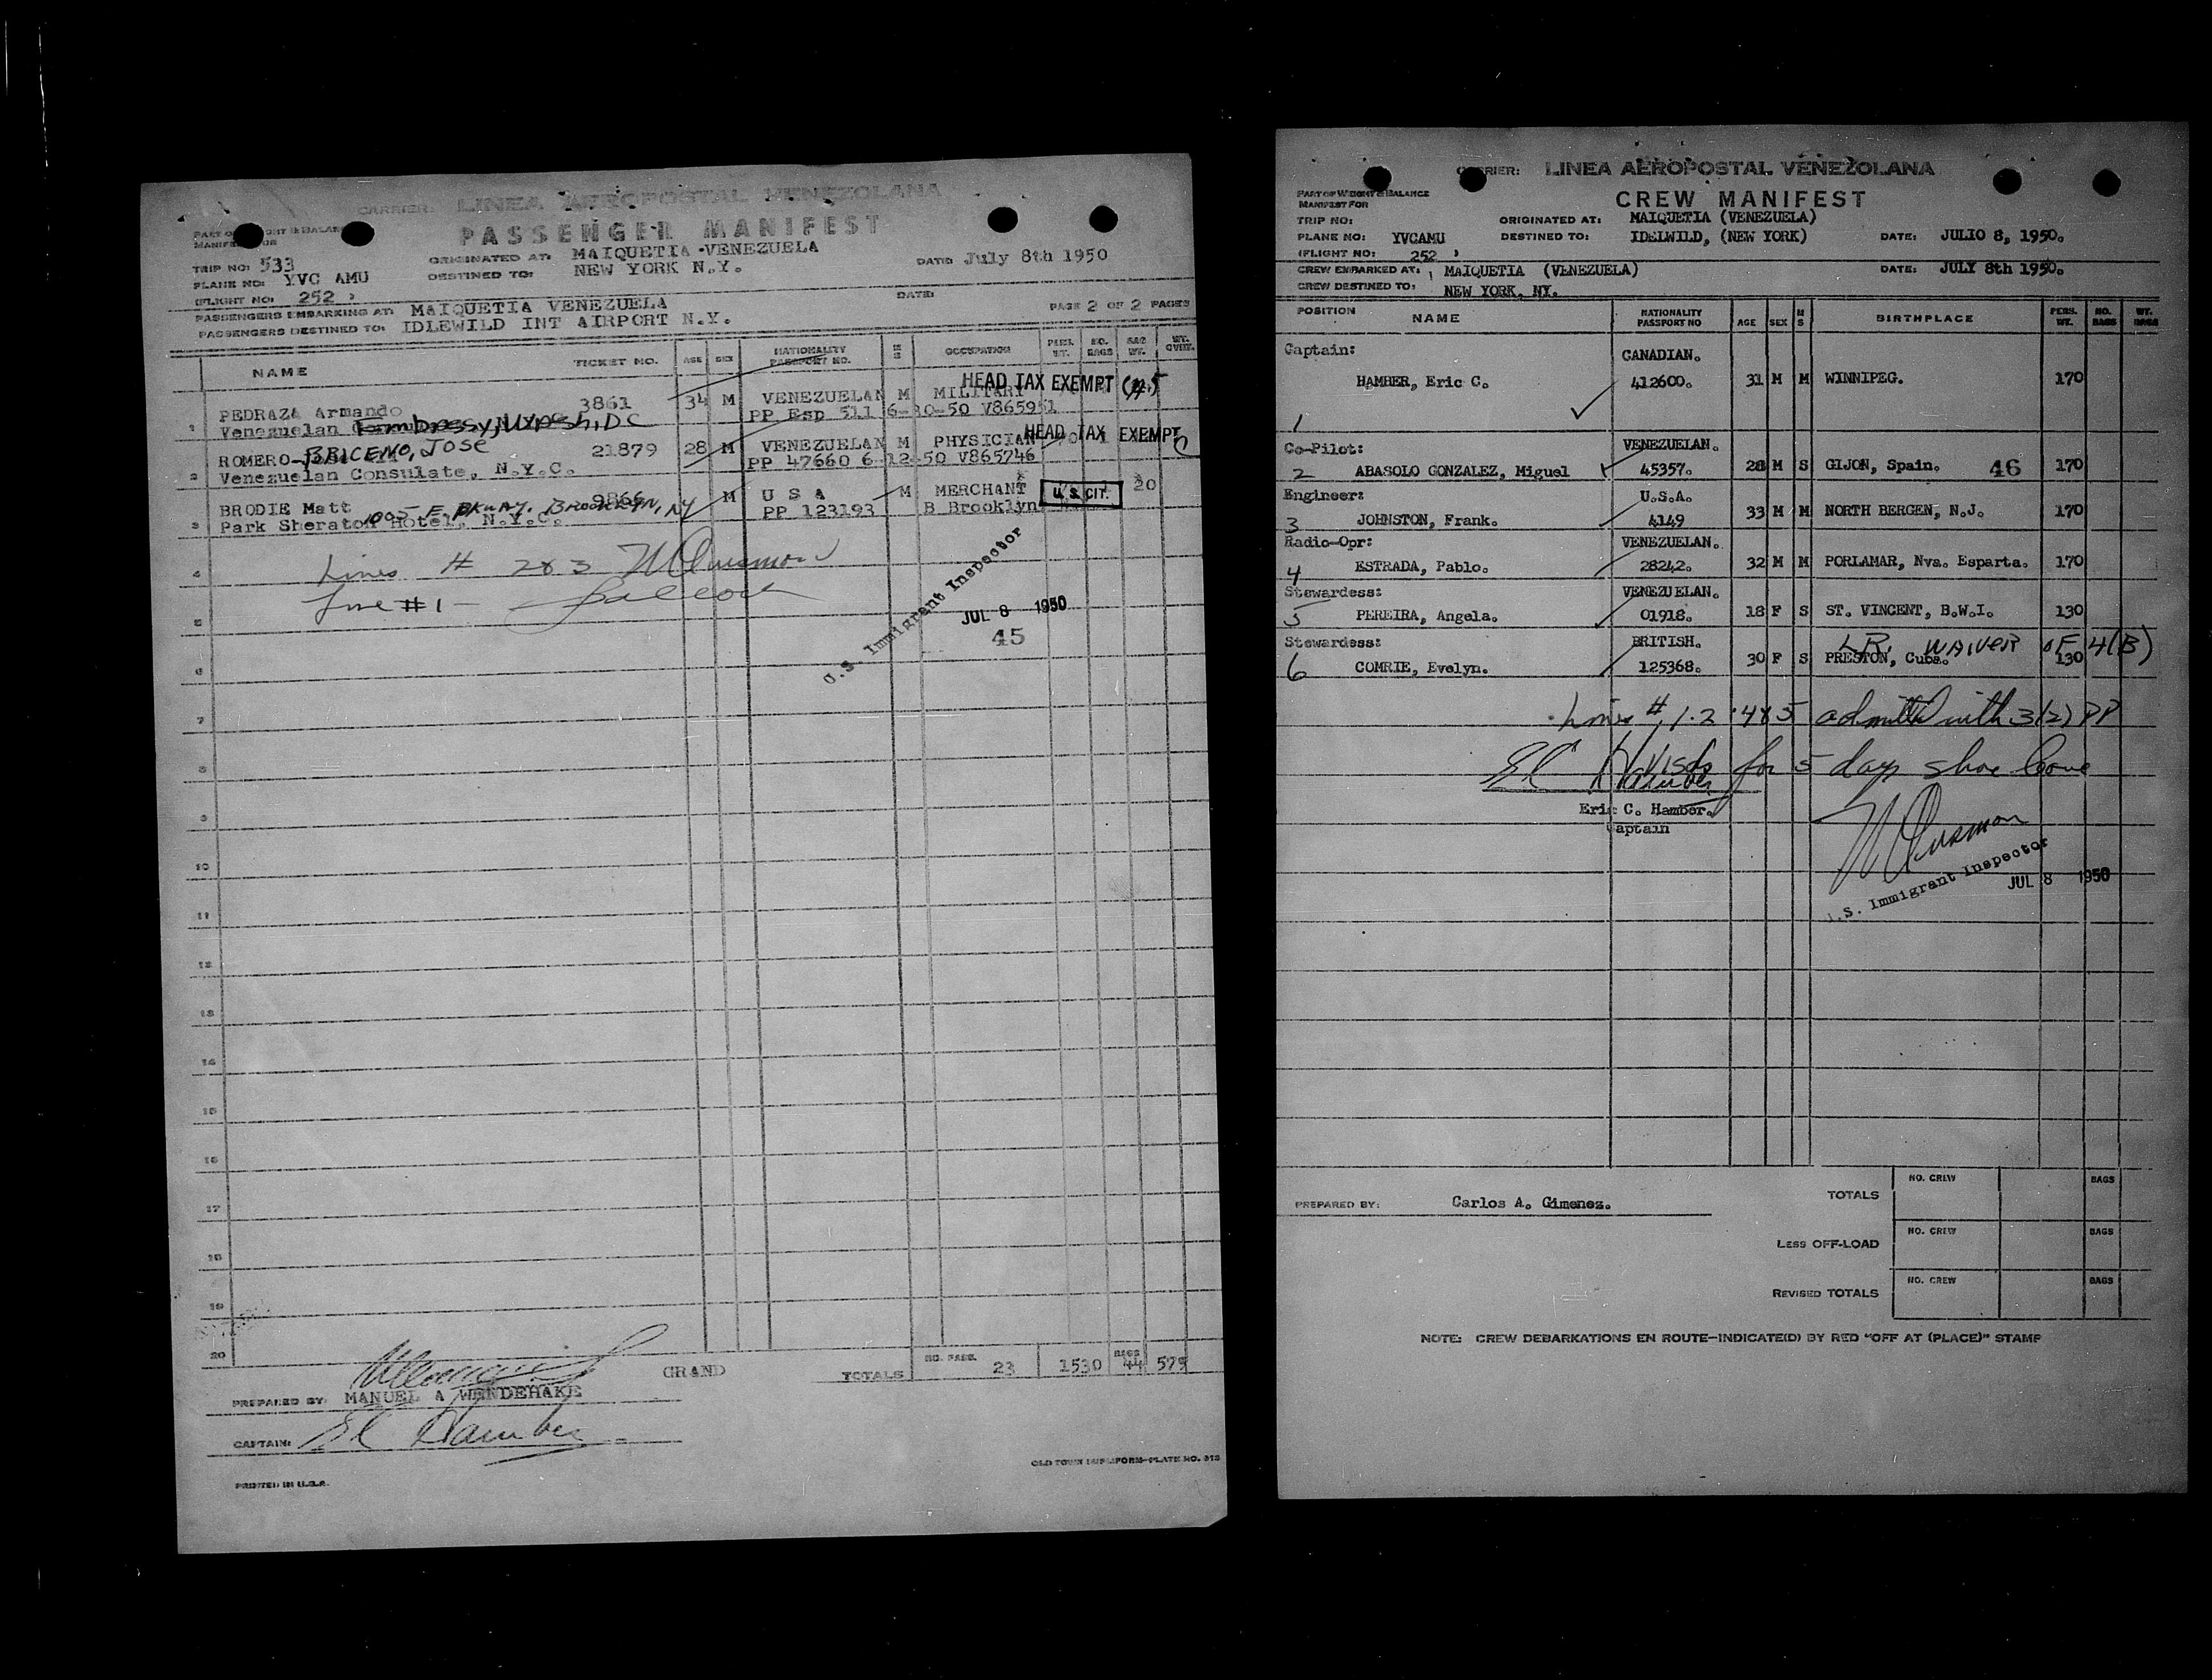 CARRIER: LINEA AEROPOSTAL VENEZOLANA
PASSENGER MANIFEST
TRIP NO: 533 ORIGINATED AT: MAIQUETIA VENEZUELA DATE: July 8th 1950
PLANE NO: YVC AMU DESTINED TO: NEW YORK N.Y.
(FLIGHT NO: 252 )
PASSENGERS EMBARKING AT: MAIQUETIA VENEZUELA DATE: PAGE 2 OF 2 PAGES
PASSENGERS DESTINED TO: IDLEWILD INT AIRPORT N.Y.
NAME TICKET NO. AGE SEX NATIONALITY PASSPORT NO. M S OCCUPATION PERS. WT. NO. BAGS BAG WT.
HEAD TAX EXEMPT
PEDRAZA Armando 3861 34 M VENEZUELAN M MILITARY
1 Venezuelan Embassy, Wash, DC PP Esp 511 6-30-50 V865951
ROMERO-BRICENO, JOSE 21879 28 M VENEZUELAN M PHYSICIAN HEAD TAX EXEMPT
2 Venezuelan Consulate, N.Y.C. PP 47660 6-12-50 V865746
BRODIE Matt 9866 M U S A M MERCHANT U.S. CIT. 20
1005 E. PKWAY. BROOKLYN, NY
3 Park Sheraton Hotel, N.Y.C. PP 123193 B Brooklyn
4 Lines # 2&3
5 Line #1
U.S. Immigrant Inspector
JUL 8 1950
45
6
7
8
9
10
11
12
13
14
15
16
17
18
19
20
GRAND TOTALS NO. PASS. 23 1530 BAGS 44 575
PREPARED BY: MANUEL A WENDEHAKE
CAPTAIN: EC Hamber
OLD TOWN DUPLIFORM-PLATE NO.
PRINTED IN U.S.A.
CARRIER: LINEA AEROPOSTAL VENEZOLANA
PART OF WEIGHT & BALANCE
MANIFEST FOR
CREW MANIFEST
TRIP NO: ORIGINATED AT: MAIQUETIA (VENEZUELA)
PLANE NO: YVCAMU DESTINED TO: IDELWILD, (NEW YORK) DATE: JULIO 8, 1950.
(FLIGHT NO: 252 )
CREW EMBARKED AT: MAIQUETIA (VENEZUELA) DATE: JULY 8th 1950.
CREW DESTINED TO: NEW YORK, NY.
POSITION NAME NATIONALITY PASSPORT NO AGE SEX M S BIRTHPLACE PERS. WT. NO. BAGS WT. BAGS
Captain: CANADIAN.
HAMBER, Eric C. 412600. 31 M M WINNIPEG. 170
1
Co-Pilot: VENEZUELAN.
2 ABASOLO GONZALEZ, Miguel 45357. 28 M S GIJON, Spain. 46 170
Engineer: U.S.A.
3 JOHNSTON, Frank. 4149 33 M M NORTH BERGEN, N.J. 170
Radio-Opr: VENEZUELAN.
4 ESTRADA, Pablo. 28242. 32 M M PORLAMAR, Nva. Esparta. 170
Stewardess: VENEZUELAN.
5 PEREIRA, Angela. 01918. 18 F S ST. VINCENT, B.W.I. 130
Stewardess: BRITISH. WAIVER OF 4(B)
6 COMRIE, Evelyn. 125368. 30 F S PRESTON, Cuba. 130
Lines # 1. 2. 4&5 admitted with 3(2) PP
Visas for 5 day shore leave
EC Hamber
Eric C. Hamber.
Captain
U.S. Immigrant Inspector
JUL 8 1950
PREPARED BY: Carlos A. Gimenez.
TOTALS NO. CREW BAGS
LESS OFF-LOAD NO. CREW BAGS
REVISED TOTALS NO. CREW BAGS
NOTE: CREW DEBARKATIONS EN ROUTE-INDICATE(D) BY RED "OFF AT (PLACE)" STAMP